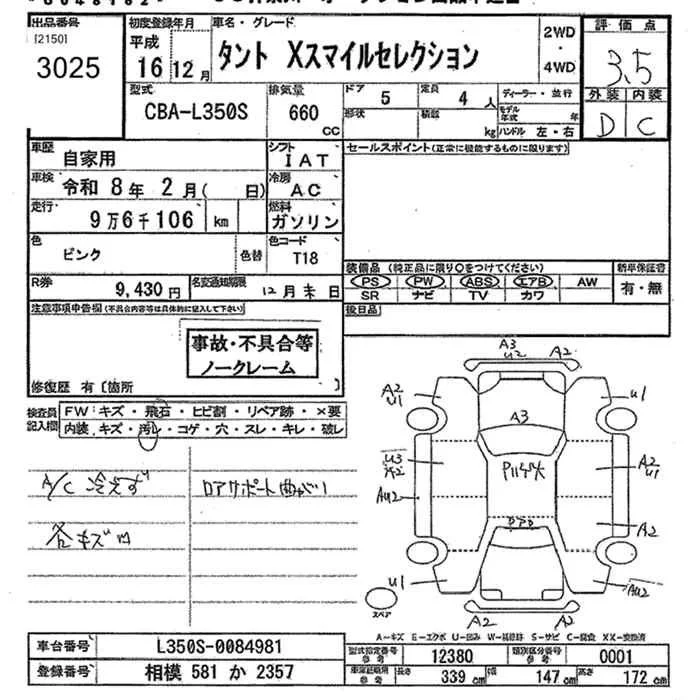 出品番号
[2150]
3025
初度登録年月
平成
16 12月
車名・グレード
タント Xスマイルセレクション
2WD
・
4WD
評価点
3.5
外装 内装
D C
型式
CBA-L350S
排気量
660
CC
ドア 5
形状
定員 4 人
積載 kg
ディーラー・並行
モデル年式 年
ハンドル 左・右
車歴 自家用
シフト IAT
車検 令和 8年 2月( 日)
冷房 AC
走行 9万6千106 km
燃料 ガソリン
色 ピンク 色替
色コード T18
R券 9,430円
名変通知期限 12月末日
セールスポイント(正常に機能するものに限ります)
装備品 (純正品に限り○をつけてください)
新車保証書
PS PW ABS エアB AW
SR ナビ TV カワ
有・無
後日品
注意事項申告欄(不具合内容等は具体的に記入して下さい)
事故・不具合等
ノークレーム
修復歴 有〔箇所 〕
検査員
記入欄
FW:キズ・飛石・ヒビ割・リペア跡・×要
内装:キズ・汚レ・コゲ・穴・スレ・キレ・破レ
A/C 冷えず
ロアサポート曲がり
各キズ凹
A3
U2
A2
A2
U1
U1
A3
U3
AU2
A2
U1
A2
U1
AU2
A2
A2
スペア
A−キズ E−エクボ U−凹み W−補修跡 S−サビ C−腐食 XX−交換済
車台番号 L350S-0084981
登録番号 相模 581 か 2357
型式指定番号
参考
12380
類別区分番号
参考
0001
長さ 339 cm
幅 147 cm
高さ 172 cm